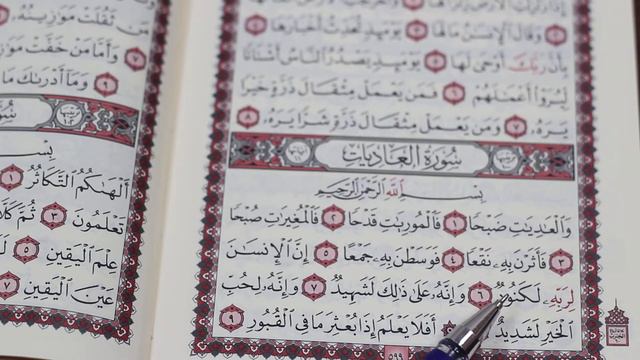 ٢ وَقَالَ ٱلْإِنسَٰنُ مَا لَهَا ٣ يَوْمَئِذٍ تُحَدِّثُ أَخْبَارَهَا ٤
بِأَنَّ رَبَّكَ أَوْحَىٰ لَهَا ٥ يَوْمَئِذٍ يَصْدُرُ ٱلنَّاسُ أَشْتَاتًا
لِّيُرَوْا۟ أَعْمَٰلَهُمْ ٦ فَمَن يَعْمَلْ مِثْقَالَ ذَرَّةٍ خَيْرًا
يَرَهُۥ ٧ وَمَن يَعْمَلْ مِثْقَالَ ذَرَّةٍ شَرًّا يَرَهُۥ ٨
سُورَةُ الْعَادِيَاتِ
بِسْمِ ٱللَّهِ ٱلرَّحْمَٰنِ ٱلرَّحِيمِ
وَٱلْعَٰدِيَٰتِ ضَبْحًا ١ فَٱلْمُورِيَٰتِ قَدْحًا ٢ فَٱلْمُغِيرَٰتِ صُبْحًا
٣ فَأَثَرْنَ بِهِۦ نَقْعًا ٤ فَوَسَطْنَ بِهِۦ جَمْعًا ٥ إِنَّ ٱلْإِنسَٰنَ
لِرَبِّهِۦ لَكَنُودٌ ٦ وَإِنَّهُۥ عَلَىٰ ذَٰلِكَ لَشَهِيدٌ ٧ وَإِنَّهُۥ لِحُبِّ
ٱلْخَيْرِ لَشَدِيدٌ أَفَلَا يَعْلَمُ إِذَا بُعْثِرَ مَا فِى ٱلْقُبُورِ ٩
٥٩٩
مَن ثَقُلَتْ مَوَٰزِينُهُۥ
٧ وَأَمَّا مَنْ خَفَّتْ
٩ وَمَآ أَدْرَىٰكَ مَا
أَلْهَىٰكُمُ ٱلتَّكَاثُرُ ١
تَعْلَمُونَ ٣ ثُمَّ كَلَّا
عِلْمَ ٱلْيَقِينِ ٥
عَيْنَ ٱلْيَقِينِ ٧